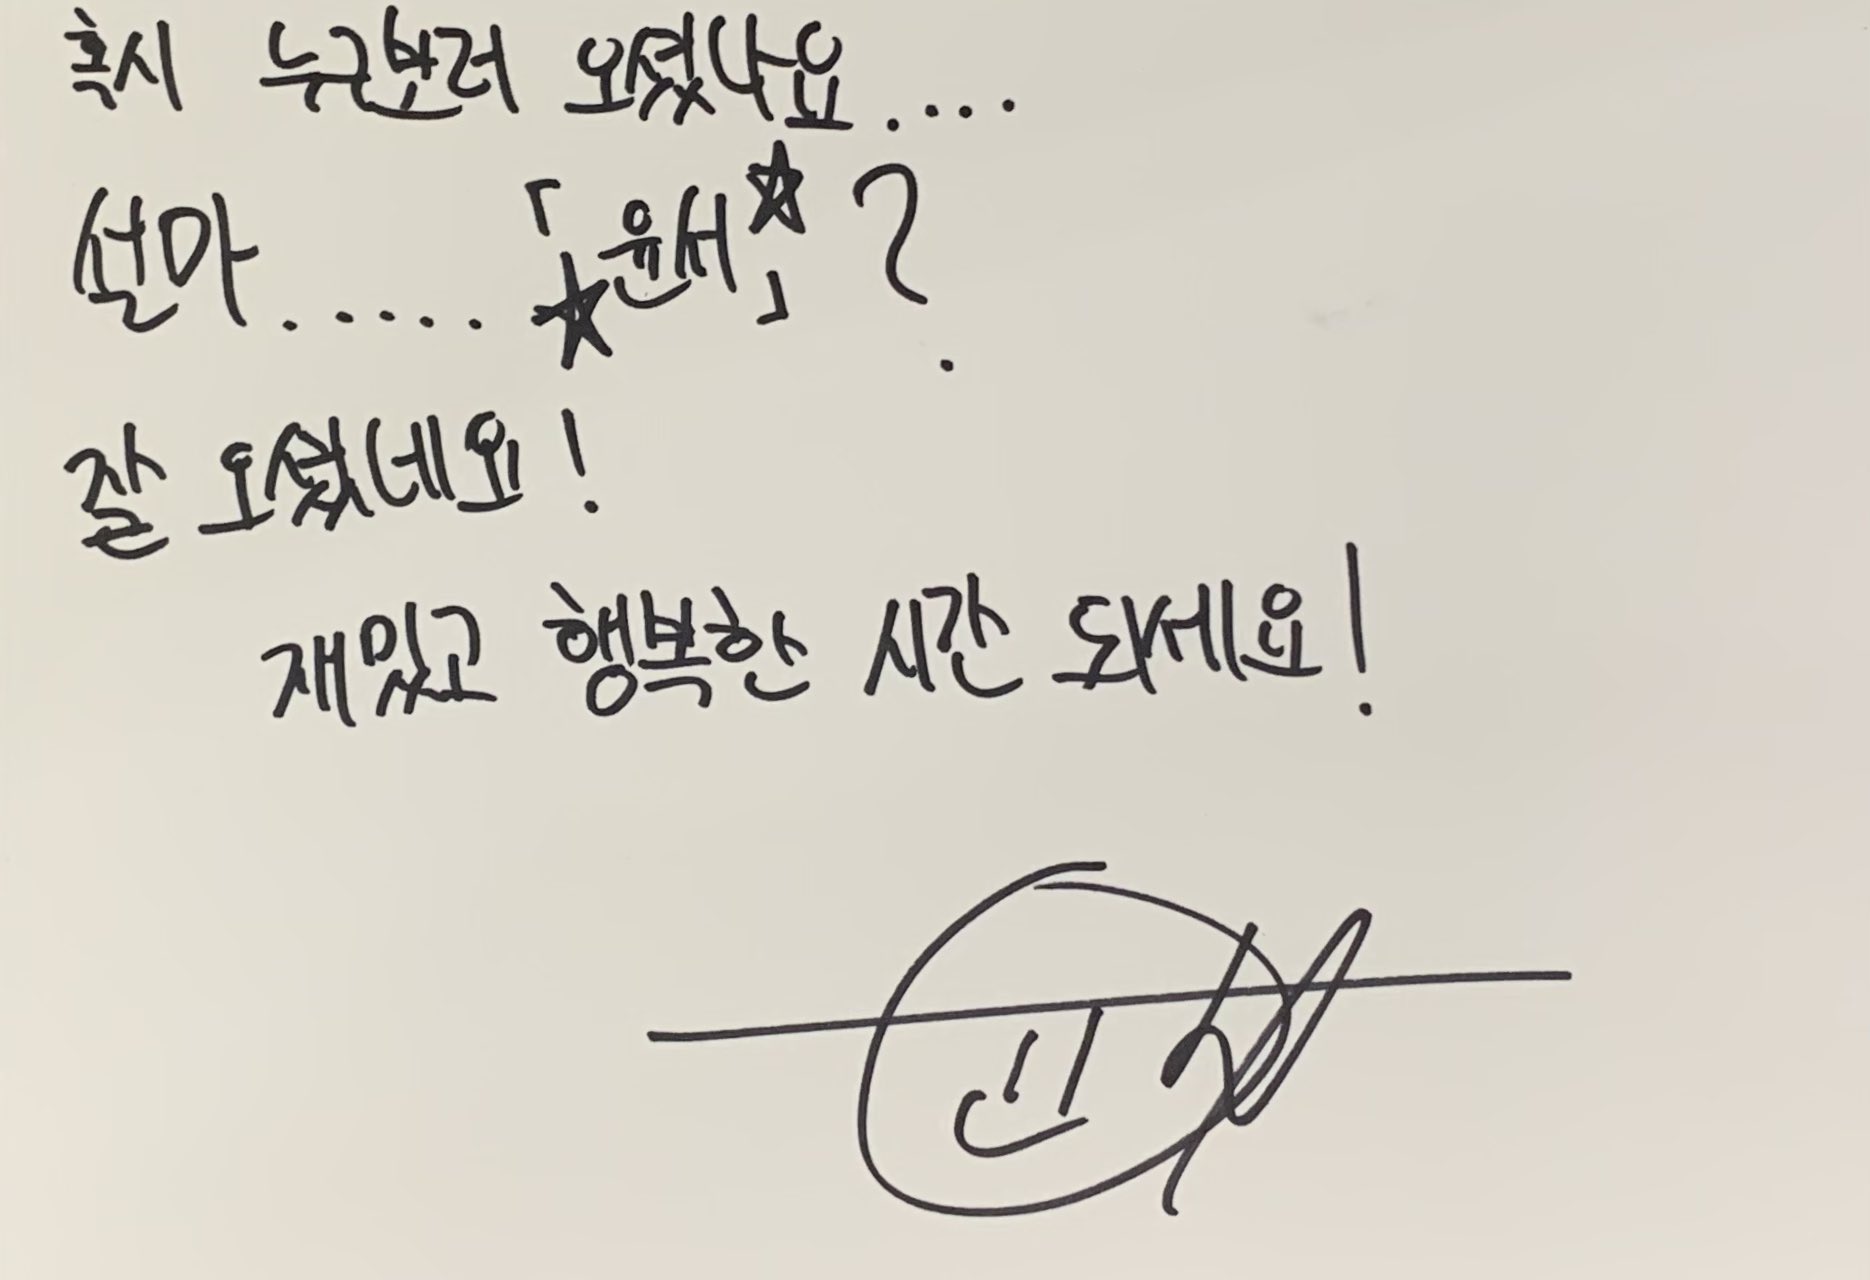 혹시 누군보러 오셨나요....
설마..... 「★윤서★」?
잘 오셨네요!
재밌고 행복한 시간 되세요!